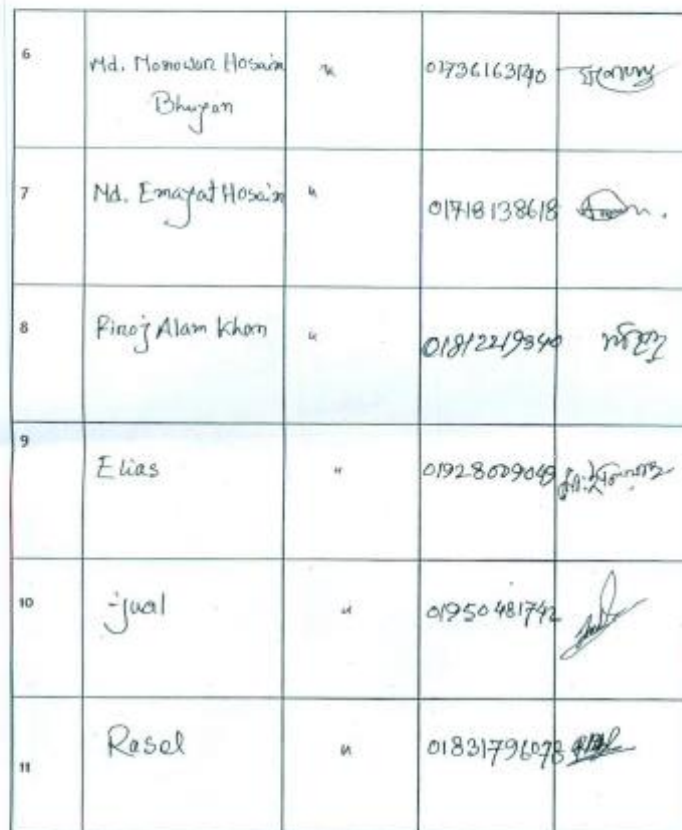 6 Md. Monowar Hosain " 01736163140
Bhuyan
7 Md. Emayat Hosain " 01718138618
8 Firoj Alam Khan " 01812219340
9 Elias " 01928009049
10 Jual " 01950481742
11 Rasel " 01831796078